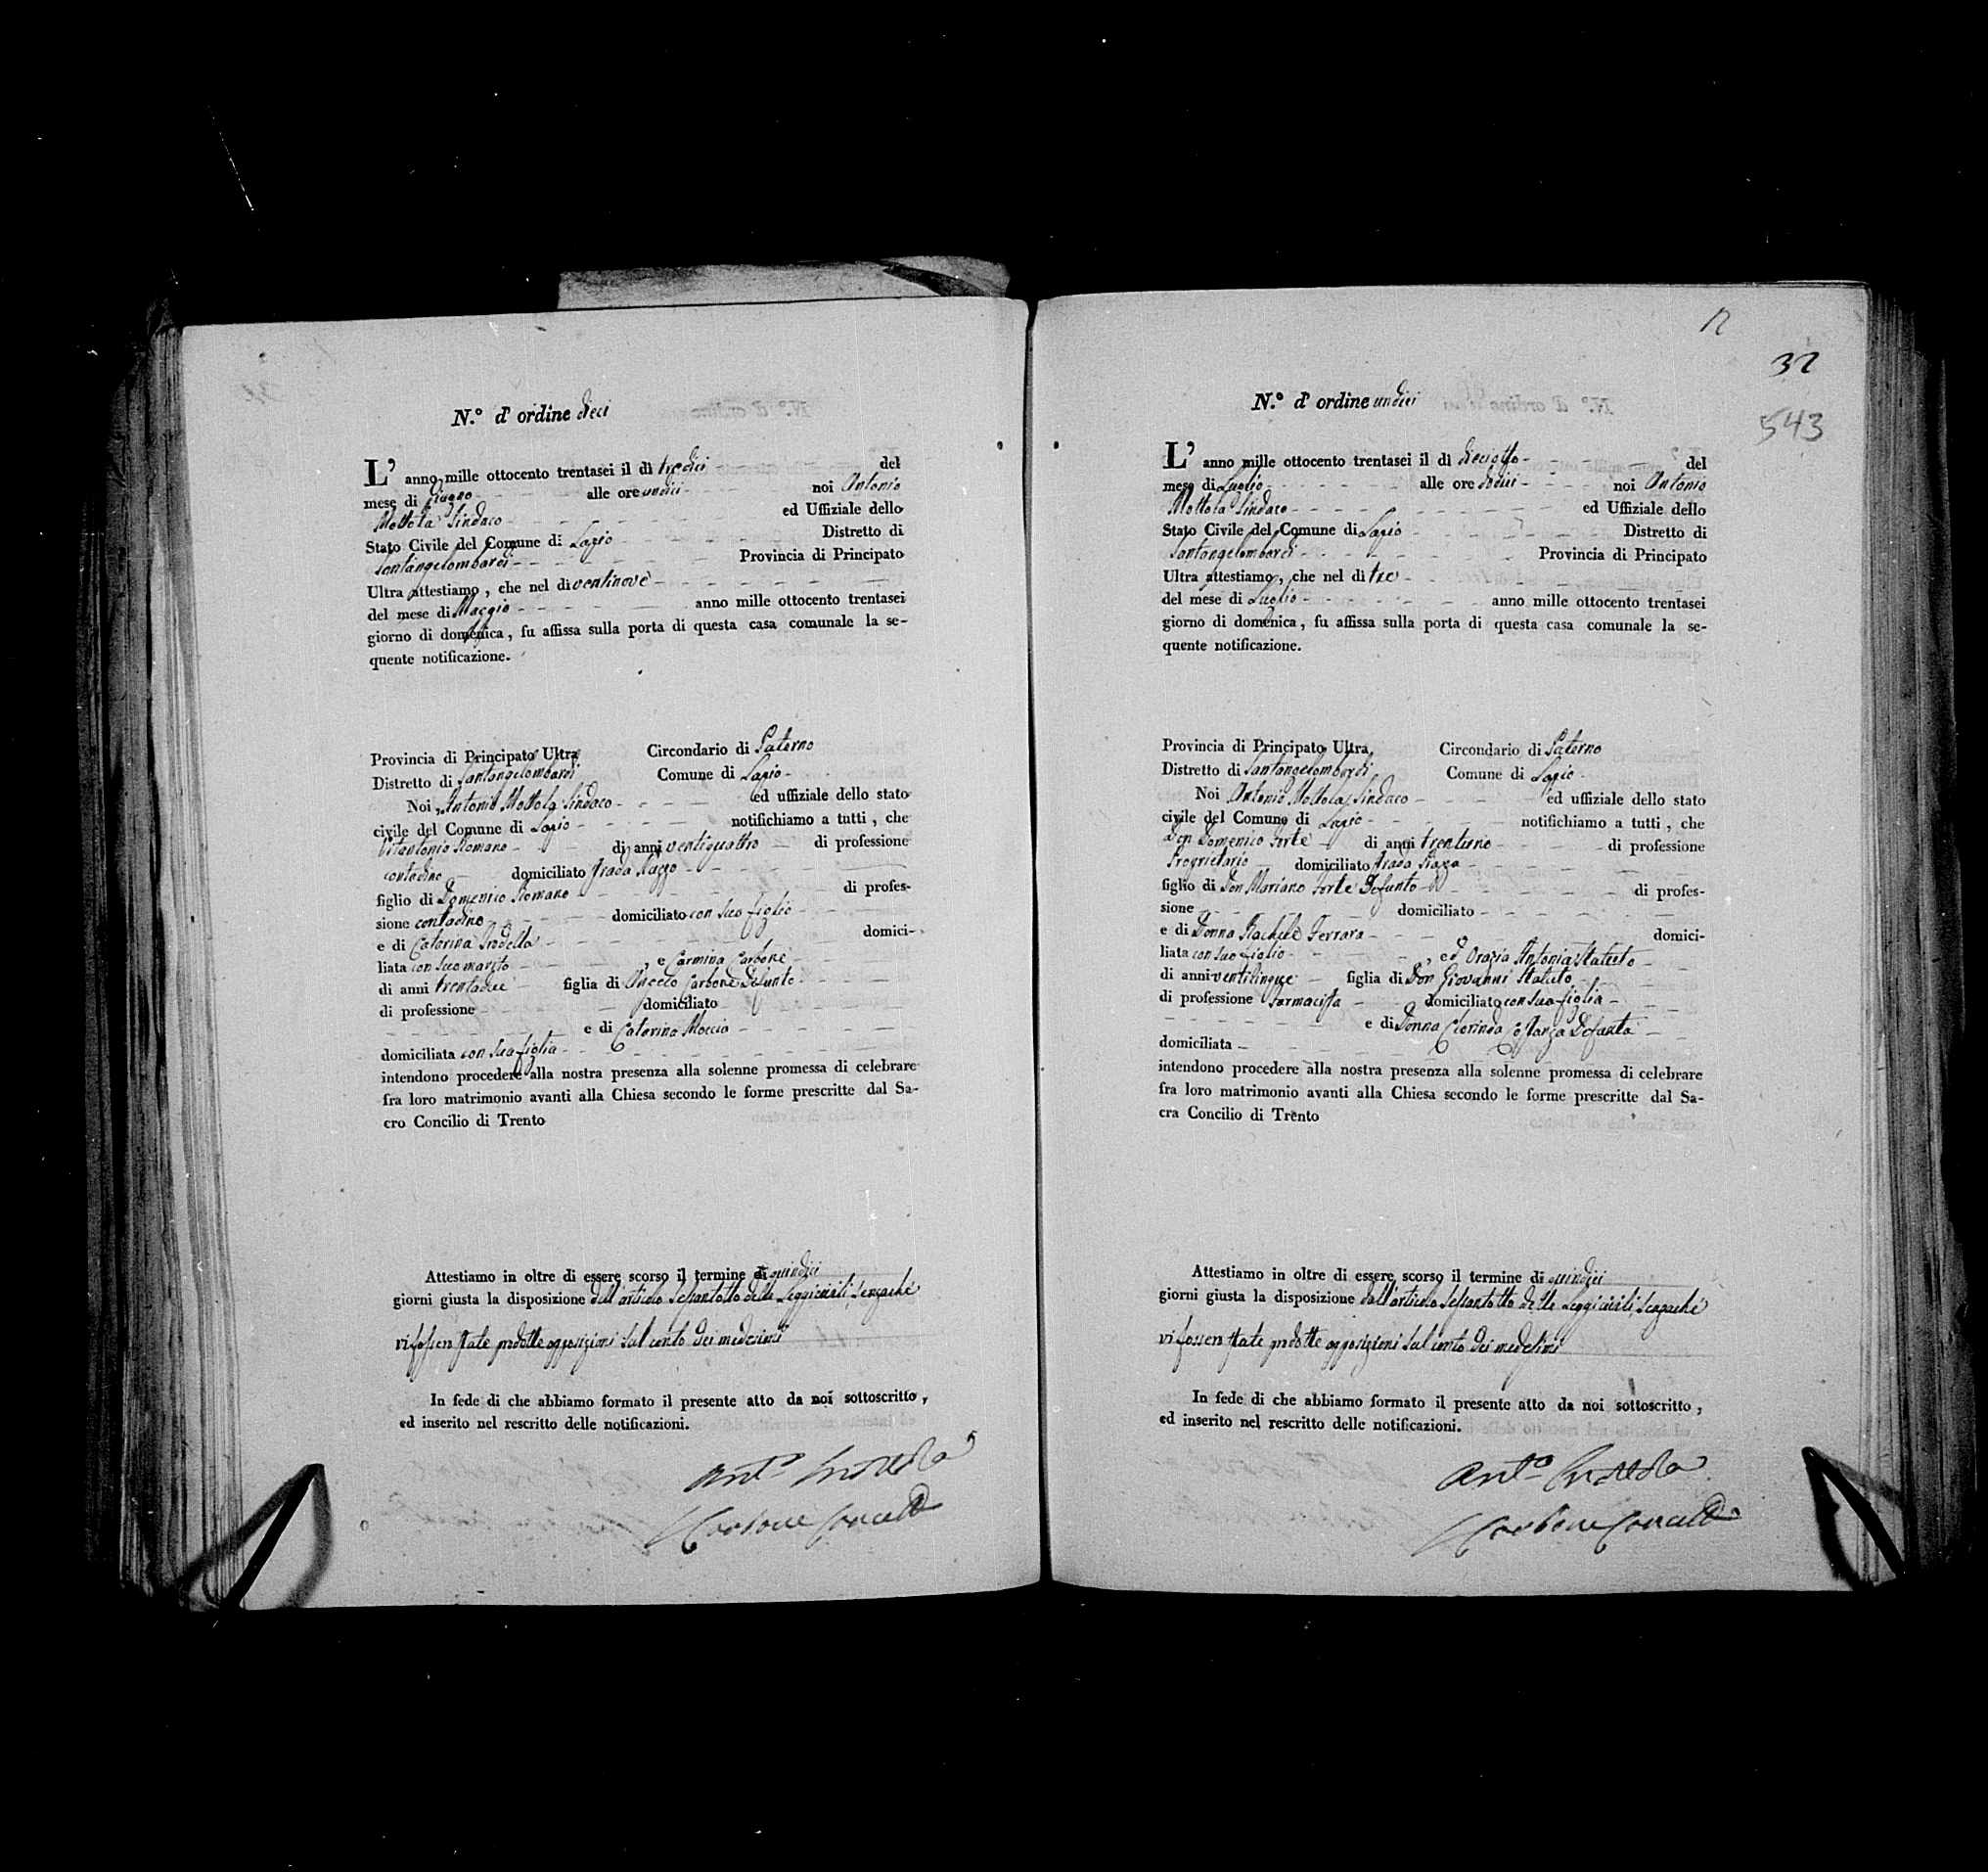 N.º d' ordine dieci
L' anno mille ottocento trentasei il dì tredici del
mese di Giugno alle ore undici noi Antonio
Mottola Sindaco ed Uffiziale dello
Stato Civile del Comune di Lapio Distretto di
Santangelombardi Provincia di Principato
Ultra attestiamo, che nel dì ventinove
del mese di Maggio anno mille ottocento trentasei
giorno di domenica, fu affissa sulla porta di questa casa comunale la se-
quente notificazione.
Provincia di Principato Ultra Circondario di Paterno
Distretto di Santangelombardi Comune di Lapio
Noi Antonio Mottola Sindaco ed uffiziale dello stato
civile del Comune di Lapio notifichiamo a tutti, che
Vitantonio Romano di anni ventiquattro di professione
contadino domiciliato strada
figlio di Domenico Romano di profes-
sione contadino domiciliato con suo figlio
e di Caterina domici-
liata con suo marito, e Carmina Carbone
di anni trentadue figlia di Angelo Carbone Defunto
di professione domiciliato
e di Caterina Moccia
domiciliata con sua figlia
intendono procedere alla nostra presenza alla solenne promessa di celebrare
fra loro matrimonio avanti alla Chiesa secondo le forme prescritte dal Sa-
cro Concilio di Trento
Attestiamo in oltre di essere scorso il termine di quindici
giorni giusta la disposizione dell'articolo sessantotto delle Leggi civili, senzaché
vi fossero state prodotte opposizioni sul conto dei medesimi
In fede di che abbiamo formato il presente atto da noi sottoscritto,
ed inserito nel rescritto delle notificazioni.
Ant.º Mottola
Carbone
12
32
543
N.º d' ordine undici
L' anno mille ottocento trentasei il dì dieciotto del
mese di Luglio alle ore dodici noi Antonio
Mottola Sindaco ed Uffiziale dello
Stato Civile del Comune di Lapio Distretto di
Santangelombardi Provincia di Principato
Ultra attestiamo, che nel dì tre
del mese di Luglio anno mille ottocento trentasei
giorno di domenica, fu affissa sulla porta di questa casa comunale la se-
quente notificazione.
Provincia di Principato Ultra, Circondario di Paterno
Distretto di Santangelombardi Comune di Lapio
Noi Antonio Mottola Sindaco ed uffiziale dello stato
civile del Comune di Lapio notifichiamo a tutti, che
Don Domenico Forte di anni trentuno di professione
Proprietario domiciliato strada
figlio di Don Mariano Forte Defunto di profes-
sione domiciliato
e di Donna Rachele Ferrara domici-
liata con suo figlio, ed Orazia Antonia Statuto
di anni venticinque figlia di Don Giovanni Statuto
di professione Farmacista domiciliato con sua figlia
e di Donna Clorinda Costanza Defunta
domiciliata
intendono procedere alla nostra presenza alla solenne promessa di celebrare
fra loro matrimonio avanti alla Chiesa secondo le forme prescritte dal Sa-
cra Concilio di Trento
Attestiamo in oltre di essere scorso il termine di quindici
giorni giusta la disposizione dall'articolo sessantotto delle Leggi civili, senzaché
vi fossero state prodotte opposizioni sul conto dei medesimi
In fede di che abbiamo formato il presente atto da noi sottoscritto,
ed inserito nel rescritto delle notificazioni.
Ant.º Mottola
Carbone